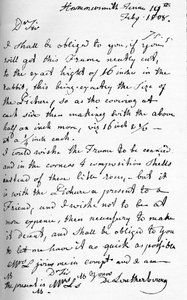 Hammersmith Terrace 19th
Feby 1808.
Dr Sir
I shall be obliged to you, if you
will get this Frame neatly cut,
to the exact hight of 16 inches in the
rabbit, this being exactly the Size of
the Picture, so as the covering at
each side then making with the above
half an inch more, viz 16 inch ½ —
at
I could wish the Frame to be
and in the corners 4 composition Shells
instead of them like rose, but it
is with the Picture a present to a
Friend, and I wish not to be at
more expence, then necessary to make
it decent, and shall be obliged to you
to let me have it as quick as possible
Mrs L joins me in compts and I am
Dr Sir
yours
the present is Mrs L's De Loutherbourg